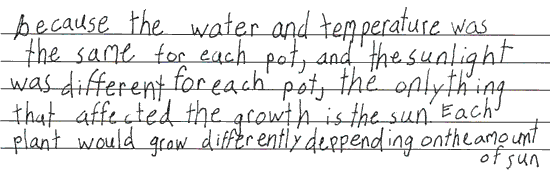 because the water and temperature was
the same for each pot, and the sunlight
was different for each pot, the only thing
that affected the growth is the sun. Each
plant would grow differently deppending on the amount
of sun